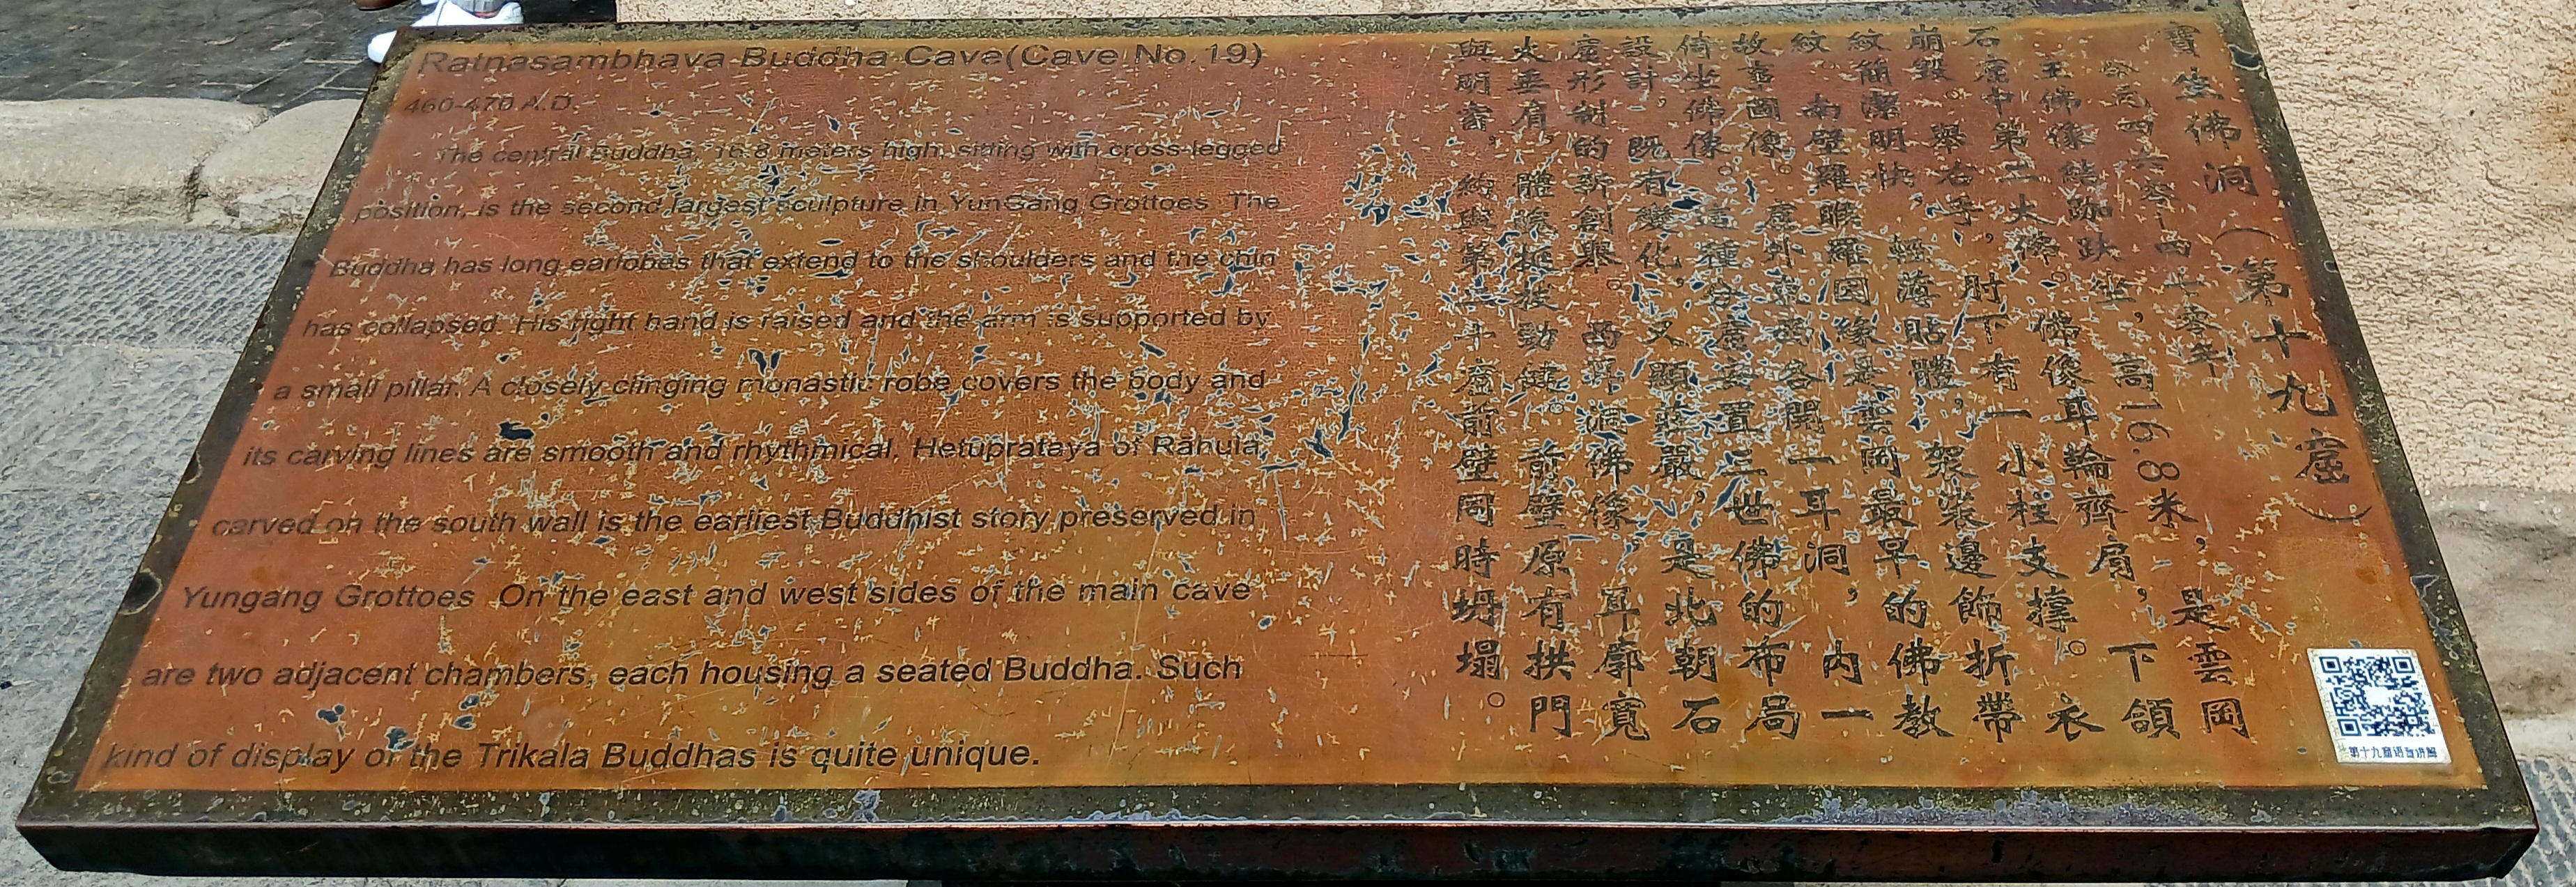 Ratnasambhava Buddha Cave(Cave No.19)
460-470 A.D.
The central Buddha, 16.8 meters high, sitting with cross-legged
position, is the second largest sculpture in YunGang Grottoes. The
Buddha has long earlobes that extend to the shoulders and the chin
has collapsed. His right hand is raised and the arm is supported by
a small pillar. A closely clinging monastic robe covers the body and
its carving lines are smooth and rhythmical. Hetuprataya of Rāhula,
carved on the south wall is the earliest Buddhist story preserved in
Yungang Grottoes. On the east and west sides of the main cave
are two adjacent chambers, each housing a seated Buddha. Such
kind of display of the Trikala Buddhas is quite unique.
寶生佛洞（第十九窟）
公元四六零—四七零年
主佛像結跏趺坐，高16.8米，是雲岡
石窟中第二大佛。佛像耳輪齊肩，下頜
崩毀。舉右手，肘下有一小柱支撐。衣
紋簡潔明快，輕薄貼體，袈裟邊飾折帶
紋。南壁羅睺羅因緣是雲岡最早的佛教
故事圖像。窟外東西各開一耳洞，內一
倚坐佛像。這種分窟安置三世佛的布局
設計，既有變化，又顯莊嚴，是北朝石
窟形制的新創舉。西耳洞佛像耳廓寬
大垂肩，體態挺拔勁健。前壁原有拱門
與明窗，約與第二十窟前壁同時坍塌。
第十九窟语音讲解